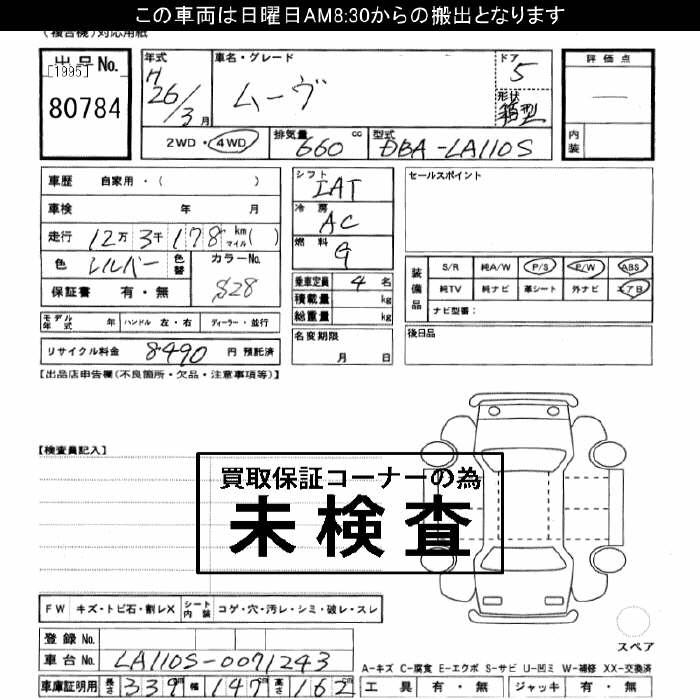 この車両は日曜日AM8:30からの搬出となります
(複合機)対応用紙
出品No.
[1995]
80784
年式
H
26/3月
車名・グレード
ムーヴ
ドア
5
形状
箱型
評価点
内装
2WD・4WD
排気量
660 cc
型式
DBA-LA110S
車歴 自家用・( )
車検 年 月
走行 12万3千178 km マイル( )
色 シルバー 色替
カラーNo.
S28
保証書 有・無
シフト
IAT
冷房
AC
燃料
G
乗車定員 4名
積載量 kg
総重量 kg
名変期限
月 日
セールスポイント
装備品
S/R 純A/W P/S P/W ABS
純TV 純ナビ 革シート 外ナビ エアB
ナビ型番:
後日品
モデル年式 年 ハンドル 左・右 ディーラー・並行
リサイクル料金 8490 円 預託済
【出品店申告欄(不良箇所・欠品・注意事項等)】
【検査員記入】
買取保証コーナーの為
未検査
FW キズ・トビ石・割レX シート内装 コゲ・穴・汚レ・シミ・破レ・スレ
スペア
登録No.
車台No. LA110S-0071243
車庫証明用 長さ 339cm 幅 147cm 高さ 162
A-キズ C-腐食 E-エクボ S-サビ U-凹ミ W-補修 XX-交換済
工具 有・無 ジャッキ 有・無